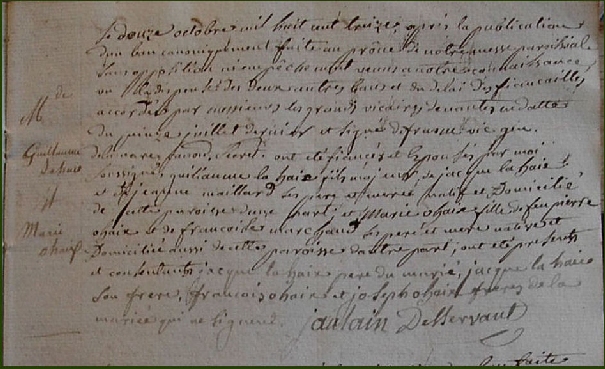 Le douze octobre mil huit cent treize, après la publication
d'un ban canoniquement faite au prône de notre messe paroissiale
sans opposition ni empêchement venus a notre connaissance
vu la dispense des deux autres bans et du délai des fiancailles
accordés par messieurs les grands vicaires de nantes en datte
du quinze juillet dernier et signée de vic. gen.
ont été fiancés et Epousés par moi
soussigné guillaume la haie fils majeur de jacque la haie
et de jeanne maillard ses pere et mere natif et Domicilié
de cette paroisse d'une part; et Marie ohaix fille de feu pierre
ohaix et de francoise marchand ses pere et mere native et
Domiciliée aussi de cette paroisse d'autre part; ont été presents
et consentants jacque la haie pere du marié, jacque la haie
son frere, francois ohaix et joseph ohaix freres de la
mariée qui ne signent. Desservant
M de
Guillaume
Lahaie
et
Marie
faite